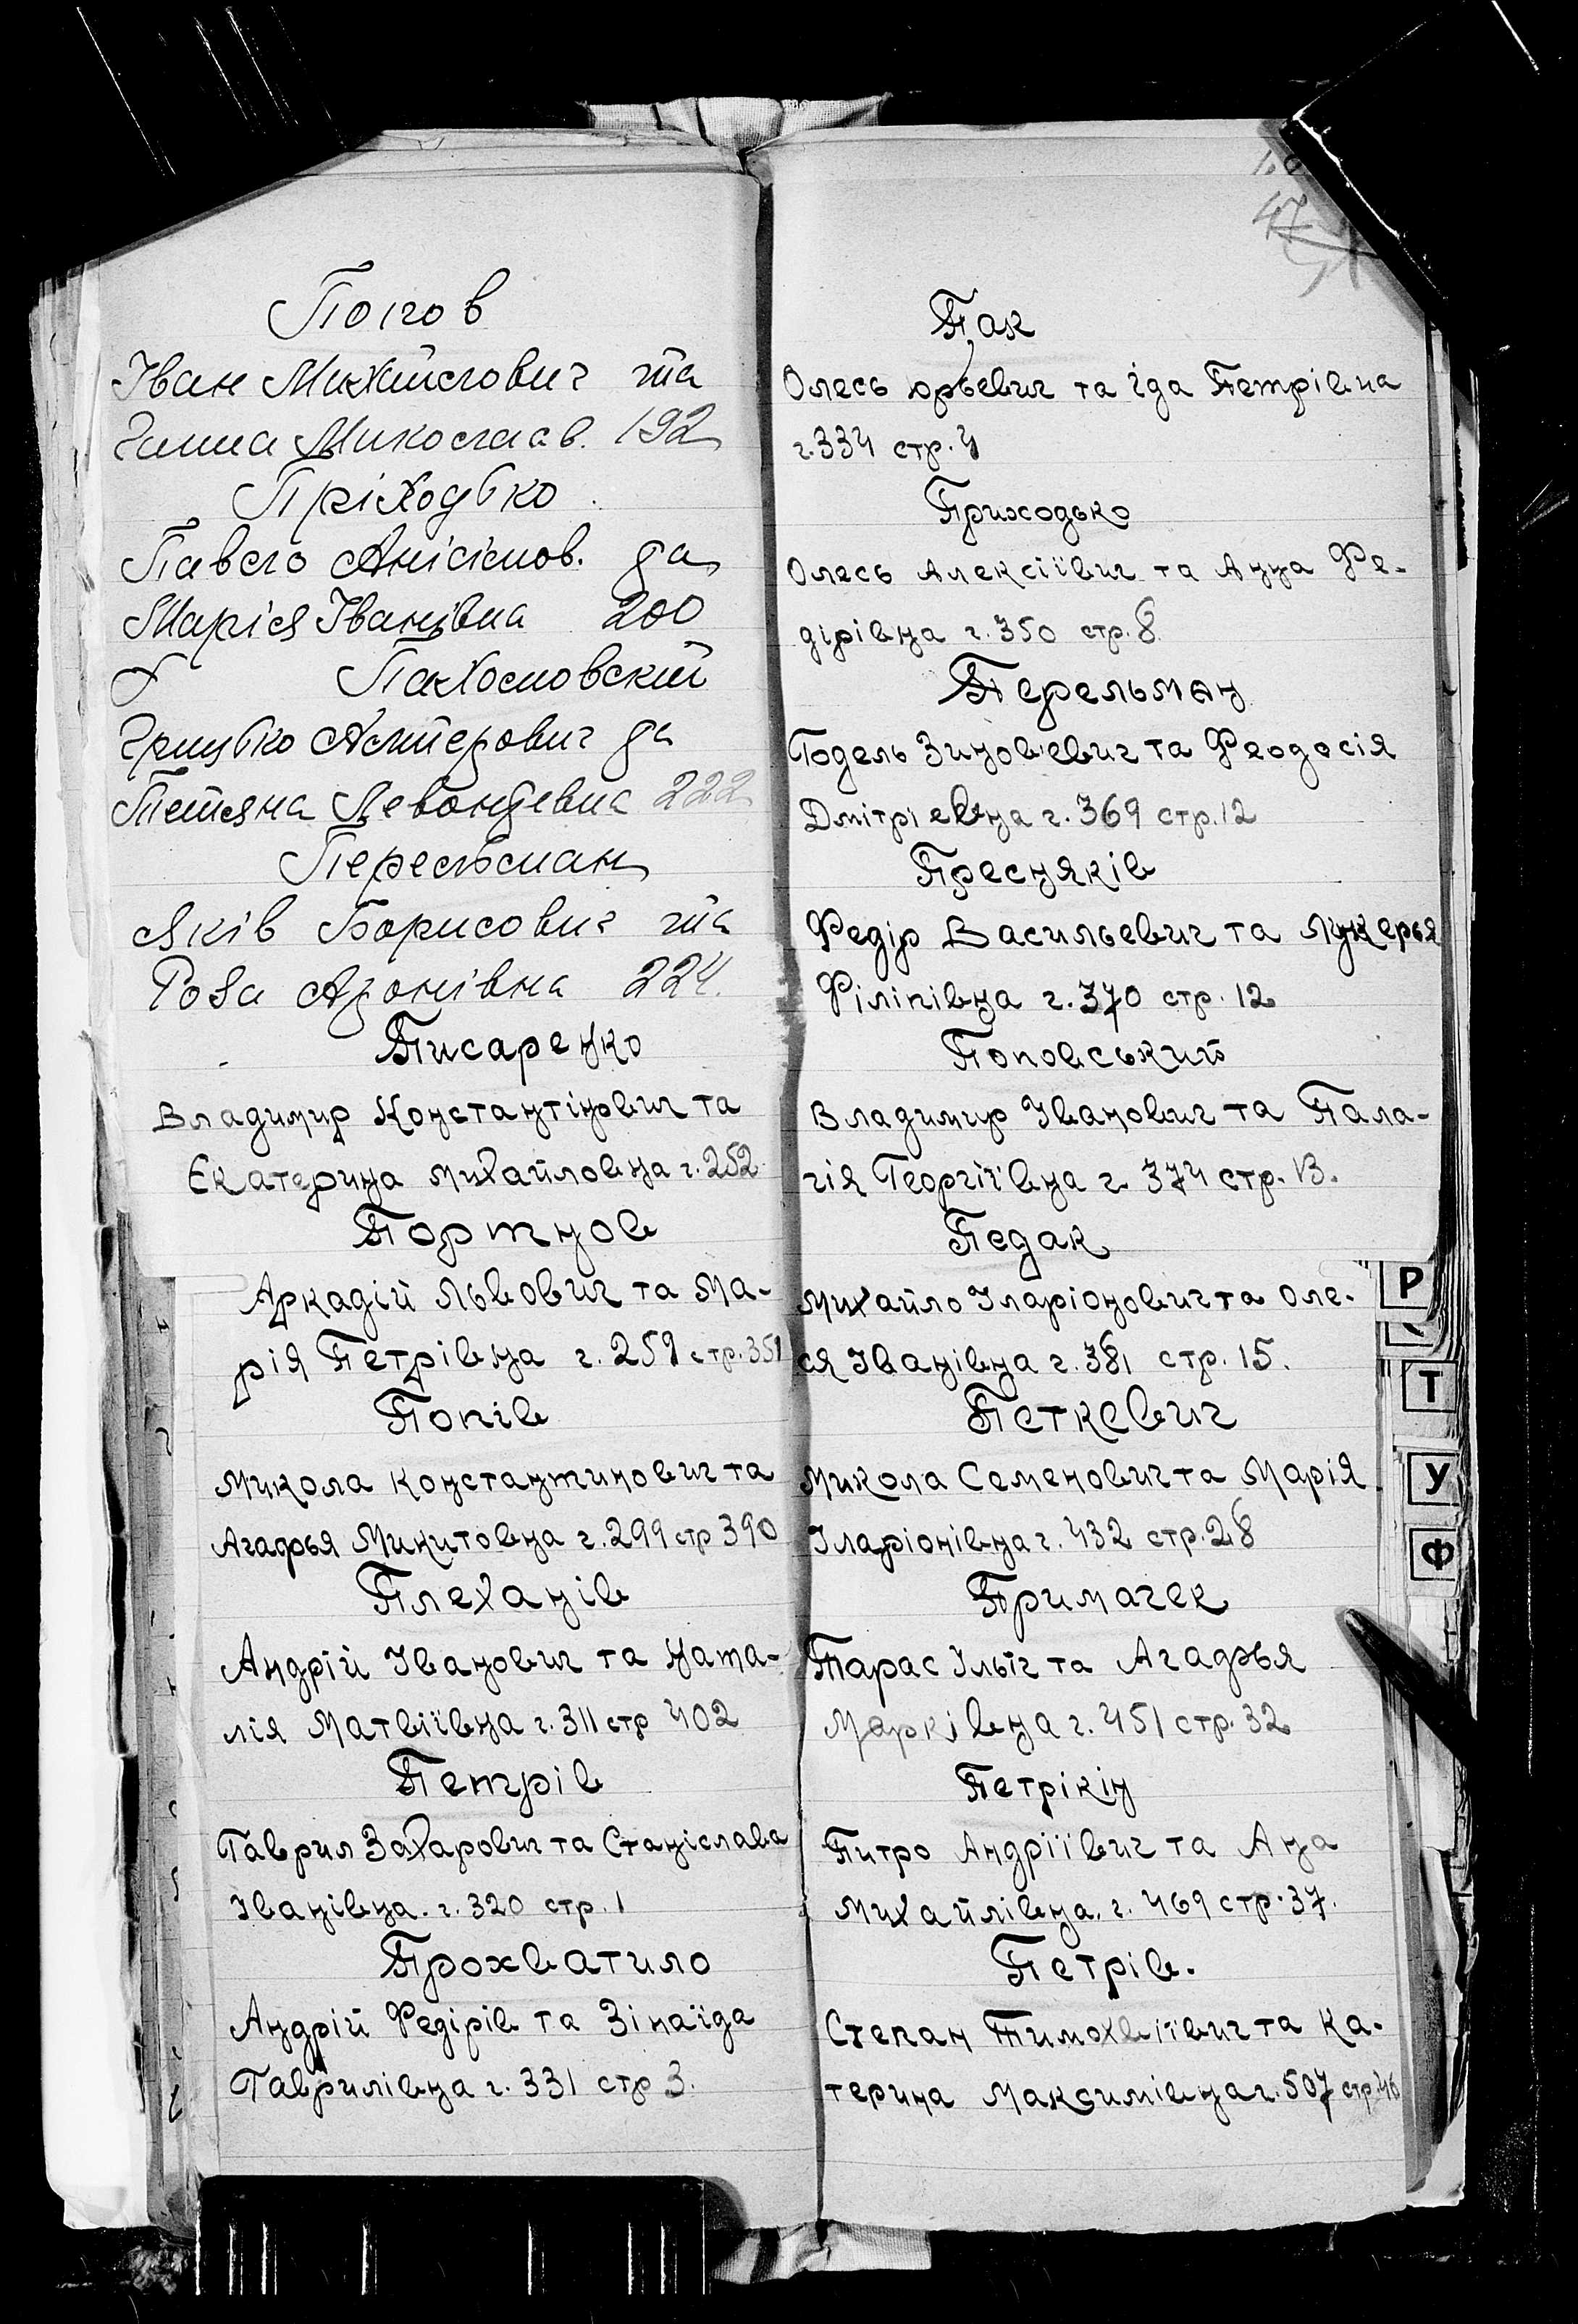 Попов
Іван Михайлович та
Ганна Миколаєв. 192
Пріходько
Павло Анісімов. да
Марія Іванівна 200
Пахомовский
Грицько
Тетяна Левонтевна 222
Перельман
Яків Борисович та
Роза Аронівна 224.
Писаренко
Владимир Константінович та
Екатерина Михайловна г. 252
Портнов
Аркадій Львович та Ма-
рія Петрівна г. 259 стр. 351
Попів
Микола Константинович та
Агафья Микитовна г. 299 стр 390
Плеханів
Андрій Іванович та Ната-
лія Матвіївна г. 311 стр 402
Петрів
Гаврил Захарович та Станіслава
Іванівна. г. 320 стр. 1
Прохватило
Андрій Федірів та Зінаїда
Гаврилівна г. 331 стр 3.
47
Пак
Олесь Юрьевич та Їда Петрівна
г. 334 стр. 4
Приходько
Олесь Алексіївич та Анна Фе-
дірівна г. 350 стр. 8
Перельман
Годель Зиновьевич та Феодосія
Дмітріевна г. 369 стр. 12
Пресняків
Федір Васильевич та Лукерья
Філіпівна г. 370 стр. 12
Поповський
Владимир Іванович та Пала-
гія Георгіївна г. 374 стр. 13.
Педак
Михайло Іларіонович та Оле-
ся Іванівна г. 381 стр. 15.
Петкевич
Микола Семенович та Марія
Іларіонівна г. 432 стр. 28
Примачек
Тарас Ільїч та Агафья
Марківна г. 451 стр. 32
Петрікін
Питро Андріївич та Ана
Михайлівна. г. 469 стр. 37.
Петрів.
Степан Тимохвіївич та Ка-
терина Максимівна г. 507 стр. 46
Р
Т
У
Ф